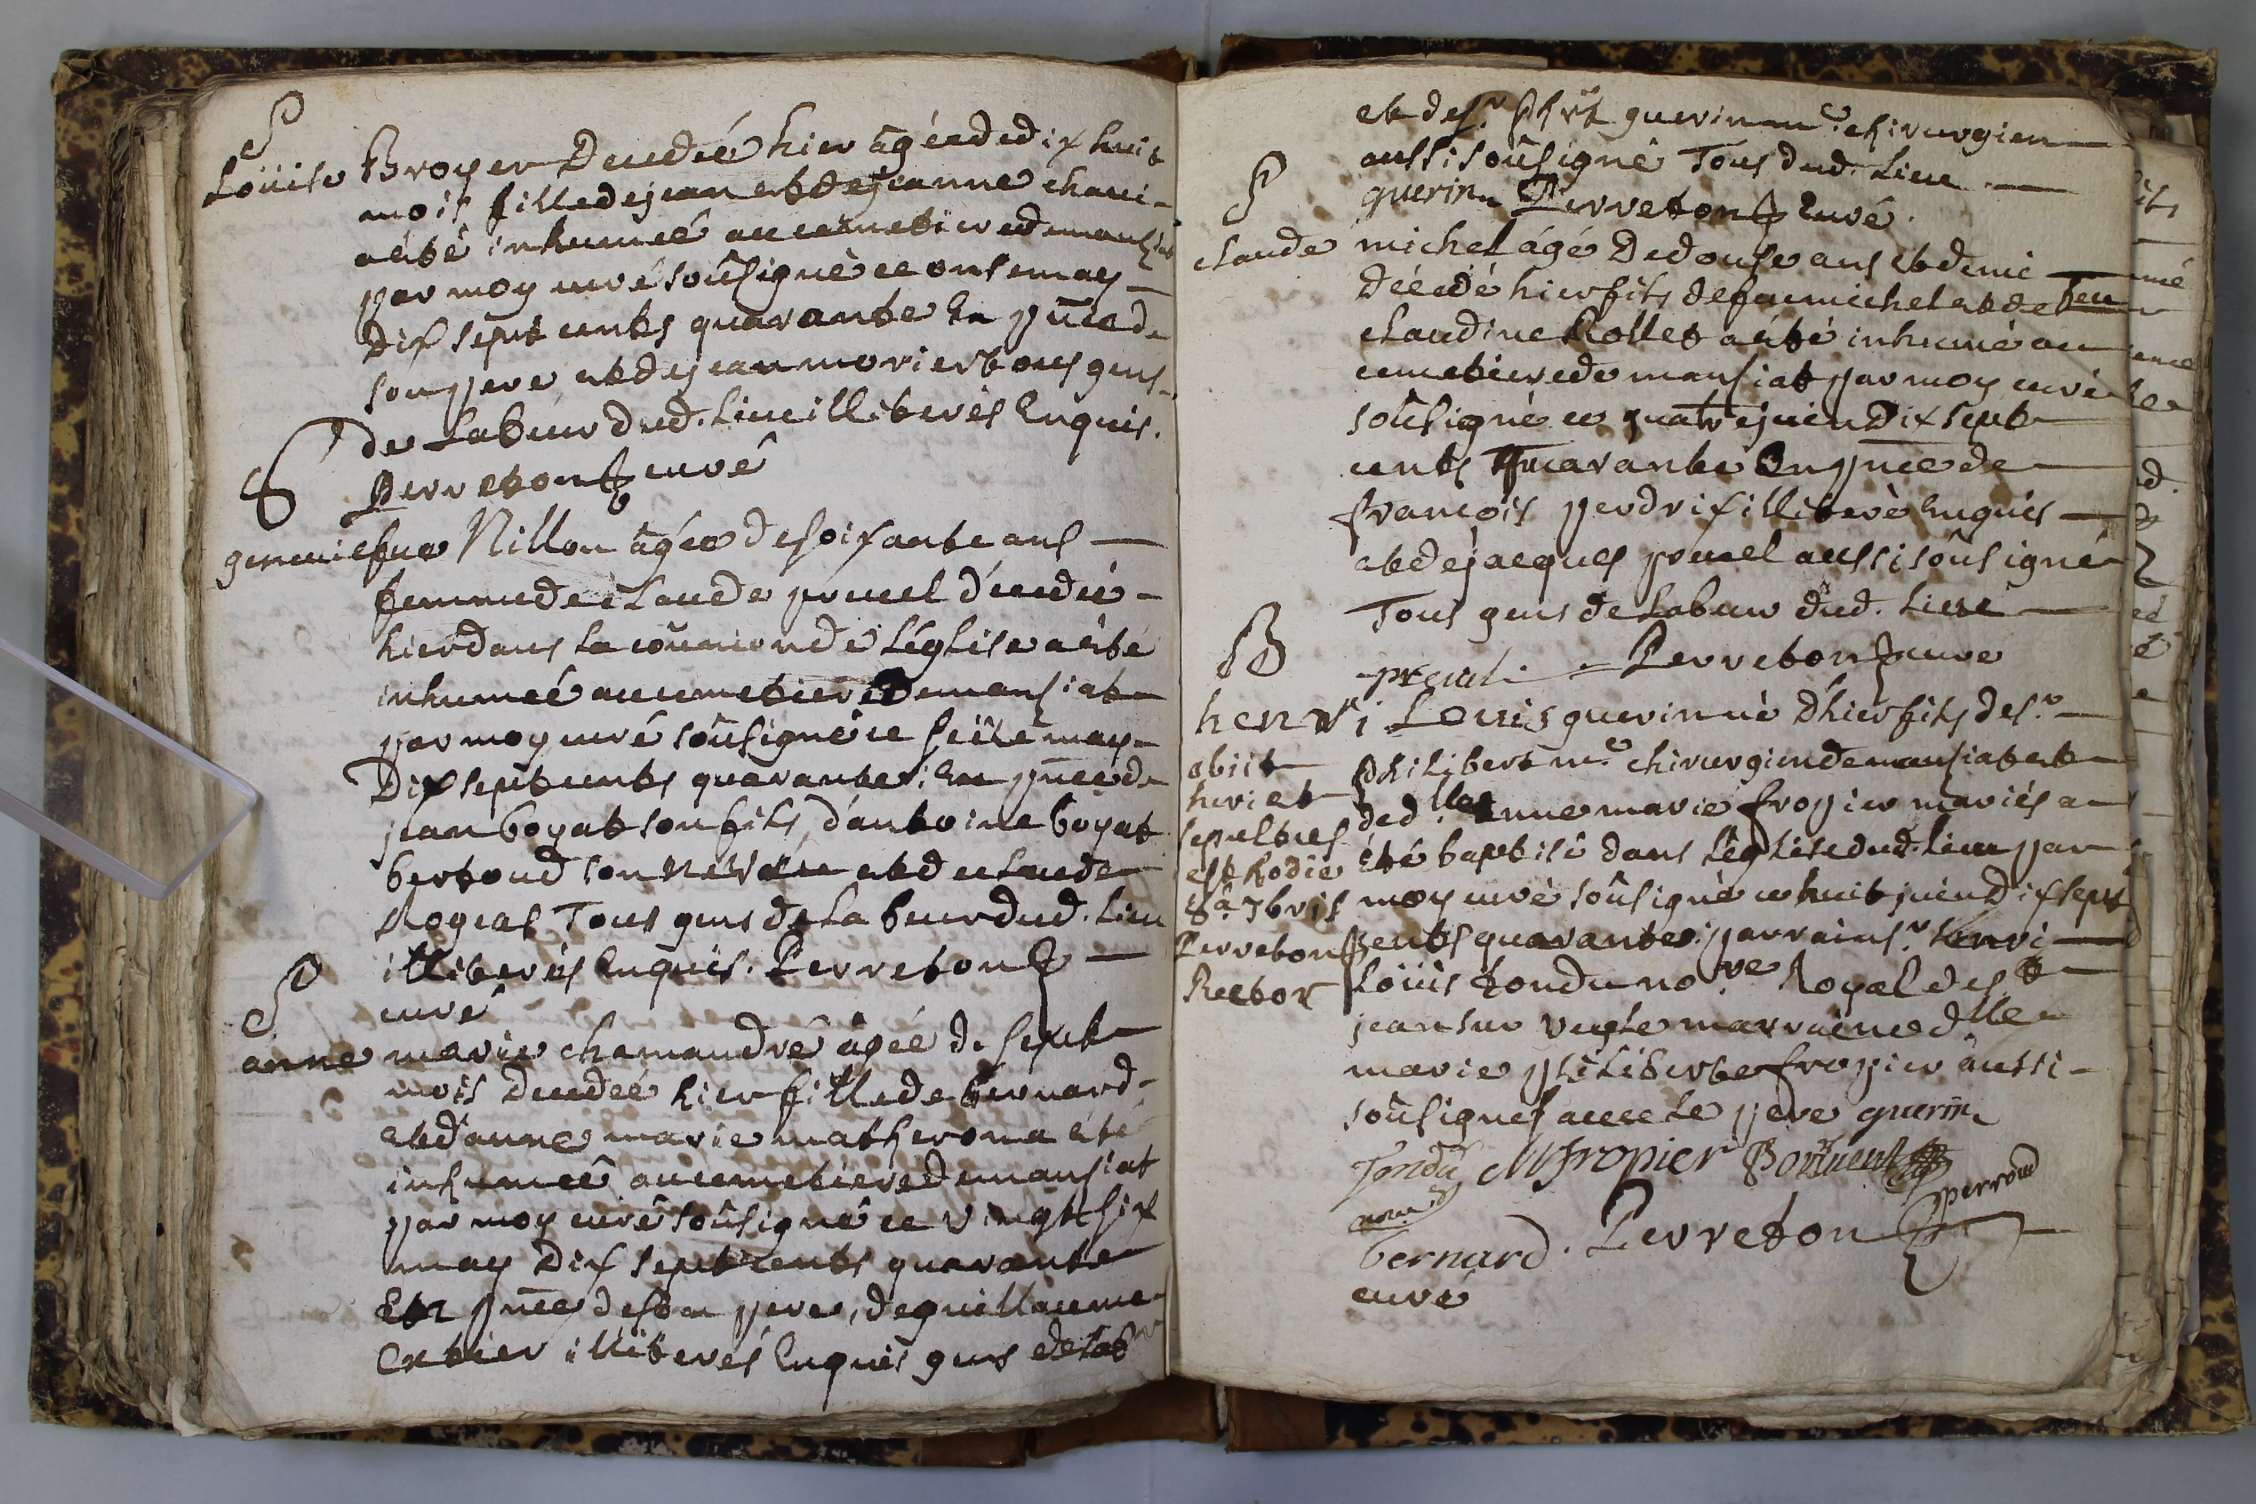 S
Loüise Broyer Decedée hier âgée de dix huit
mois fille de jean et de jeanne
a été inhumée au cimetiere de mansiat
par moy curé soûsigné ce onse may
Dix sept cents quarante En pñce de
son pere et de jean morier tous gens
de Labeur dud. Lieu illiterés Enquis.
Perreton curé
S
geneviefve Nillon âgée de soixante ans
femme de Claude pruel décedée
hier dans la coûmion de L'église a été
inhumée au cimetiere De mansiat
par moy curé soûsigné ce seize may
Dix sept cents quarante; En pñce de
jean boyat son fils, d'antoine boyat
bertoud son neveu et de claude
Tous gens de La beur dud. Lieu
illiterés Enquis. Perreton
curé
S
anne marie chamandré âgée de sept
mois Decedée hier fille de bernard
et d'anne marie matheron a été
inhumée au cimetiere De mansiat
par moy curé soûsigné ce vingt six
may Dix sept cents quarante
En pñce de son pere, de guillaume
illiterés Enquis gens de lab^r
et de s.^r guerin m.^e chirurgien
aussi soûsigné Tous dud. Lieu
guerin Perreton Curé.
S
claude michel âgé De douse ans et demi
décédé hier fils de feu michel et de feu
claudine Rollet a été inhumé au
cimetiere de mansiat par moy curé
soûsigné ce quatre juin Dix sept
cents quarante En pñce de
françois perdrix illiteré Enquis
et de jacques pruel aussi soûsigné
Tous gens de Labeur dud. Lieu
pruel. Perreton curé
B
henri Loüis guerin né d'hier fils de s.^r
philibert m.^e chirurgien de mansiat et
de d.^lle anne marie fropier mariés a
été baptisé dans L'église dud. Lieu par
moy curé soûsigné ce huit juin Dix sept
cents quarante; parrain s.^r henri
Loüis Tondu no.^re Royal de s.^t
jean sur veyle marraine d.^lle
marie philiberte fropier aussi
soûsignés avec Le pere guerin
obiit
heri et
sepultus
est hodie
8.^a 7bris
Perreton
Rector
Tondu M fropier
perroud
bernard. Perreton
curé